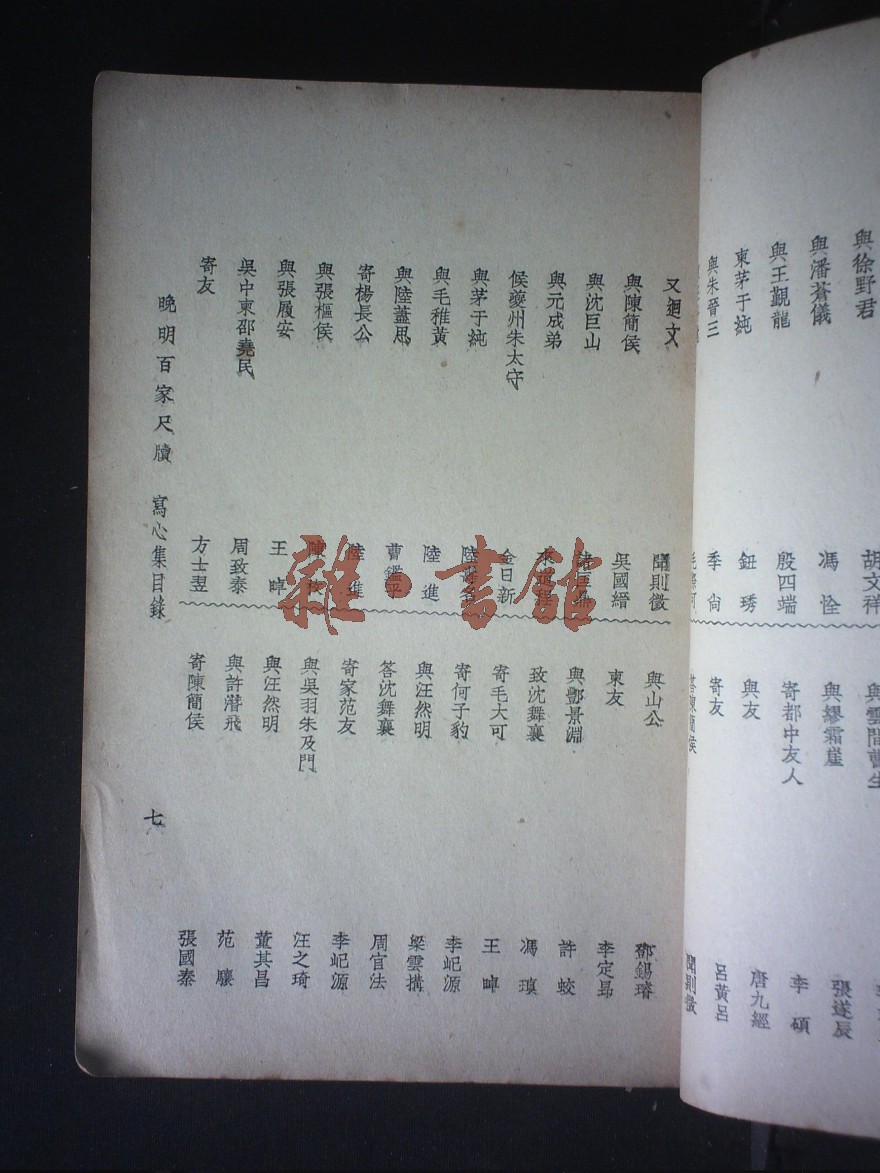 與徐野君
胡文祥
與潘蒼儀
馮恮
與王覲龍
殷四端
柬茅于純
鈕琇
與朱晉三
季尙
與雲間曹生
與繆霜崖
張遂辰
寄都中友人
李碩
與友
唐九經
寄友
呂黃呂
答陳簡侯
聞則徵
又迴文
聞則徵
與陳簡侯
吳國縉
與沈巨山
諸匡鼎
與元成弟
候夔州朱太守
金日新
與茅于純
陸
與毛稚黃
陸進
與陸藎思
曹鑑平
寄楊長公
陸進
與張樞侯
陳枚
與張履安
王晫
吳中柬邵堯民
周致泰
寄友
方士翌
與山公
鄧錫璿
柬友
李定昂
與酆景淵
許蛟
致沈舞襄
馮瑱
寄毛大可
王晫
寄何子豹
李屺源
與汪然明
梁雲搆
答沈舞襄
周官法
寄家范友
李屺源
與吳羽朱及門
汪之琦
與汪然明
董其昌
與許潛飛
范驤
寄陳簡侯
張國泰
晚明百家尺牘 寫心集目錄
七
雜·書館